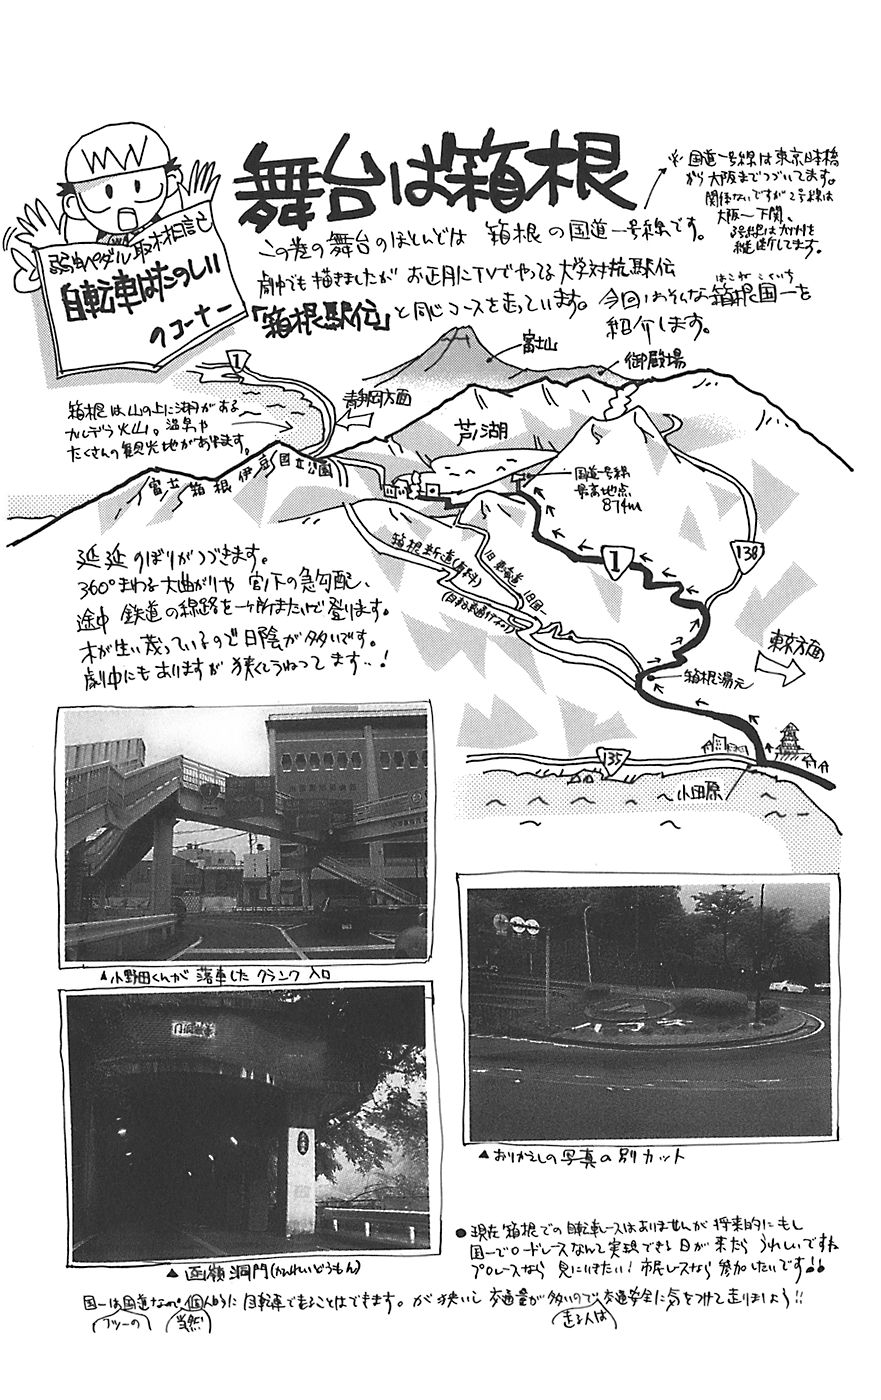 弱虫ペダル取材雑記
自転車はたのしい
のコーナー
舞台は箱根
※国道一号線は東京日本橋
から大阪までつづいてます。
関係ないですが2号線は
大阪〜下関、
3号線は九州を
縦断してます。
この巻の舞台のほとんどは 箱根の国道一号線です。
劇中でも描きましたが お正月にTVでやってる大学対抗駅伝
「箱根駅伝」と同じコースを走っています。今回はそんな箱根国一を
はこねこくいち
紹介します。
富士山
御殿場
1
静岡方面
箱根は山の上に湖がある
カルデラ火山。温泉や
たくさんの観光地があります。
芦ノ湖
富士箱根伊豆国立公園
国道一号線
最高地点
874m
箱根新道(有料)
(自転車通行不可)
旧東海道 旧国一
1
138
延延のぼりがつづきます。
360°まわる大曲がりや 宮ノ下の急勾配、
途中 鉄道の線路を一ヶ所またいで登ります。
木が生い茂っているので日陰が多いです。
劇中にもありますが 狭くてうねってます…!
東京方面
箱根湯元
135
小田原
▲小野田くんが落車したクランク入口
▲おりかえしの写真の別カット
函嶺洞門
▲函嶺洞門(かんれいどうもん)
●現在箱根での自転車レースはありませんが 将来的にもし
国一でロードレースなんて実現できる日が来たら うれしいですね
プロレースなら 見にいきたい!市民レースなら 参加したいです!!
国一は国道なので 個人的に自転車で走ることはできます。が 狭いし 交通量が多いので 交通安全に気をつけて走りましょう!!
フツーの
当然
走る人は